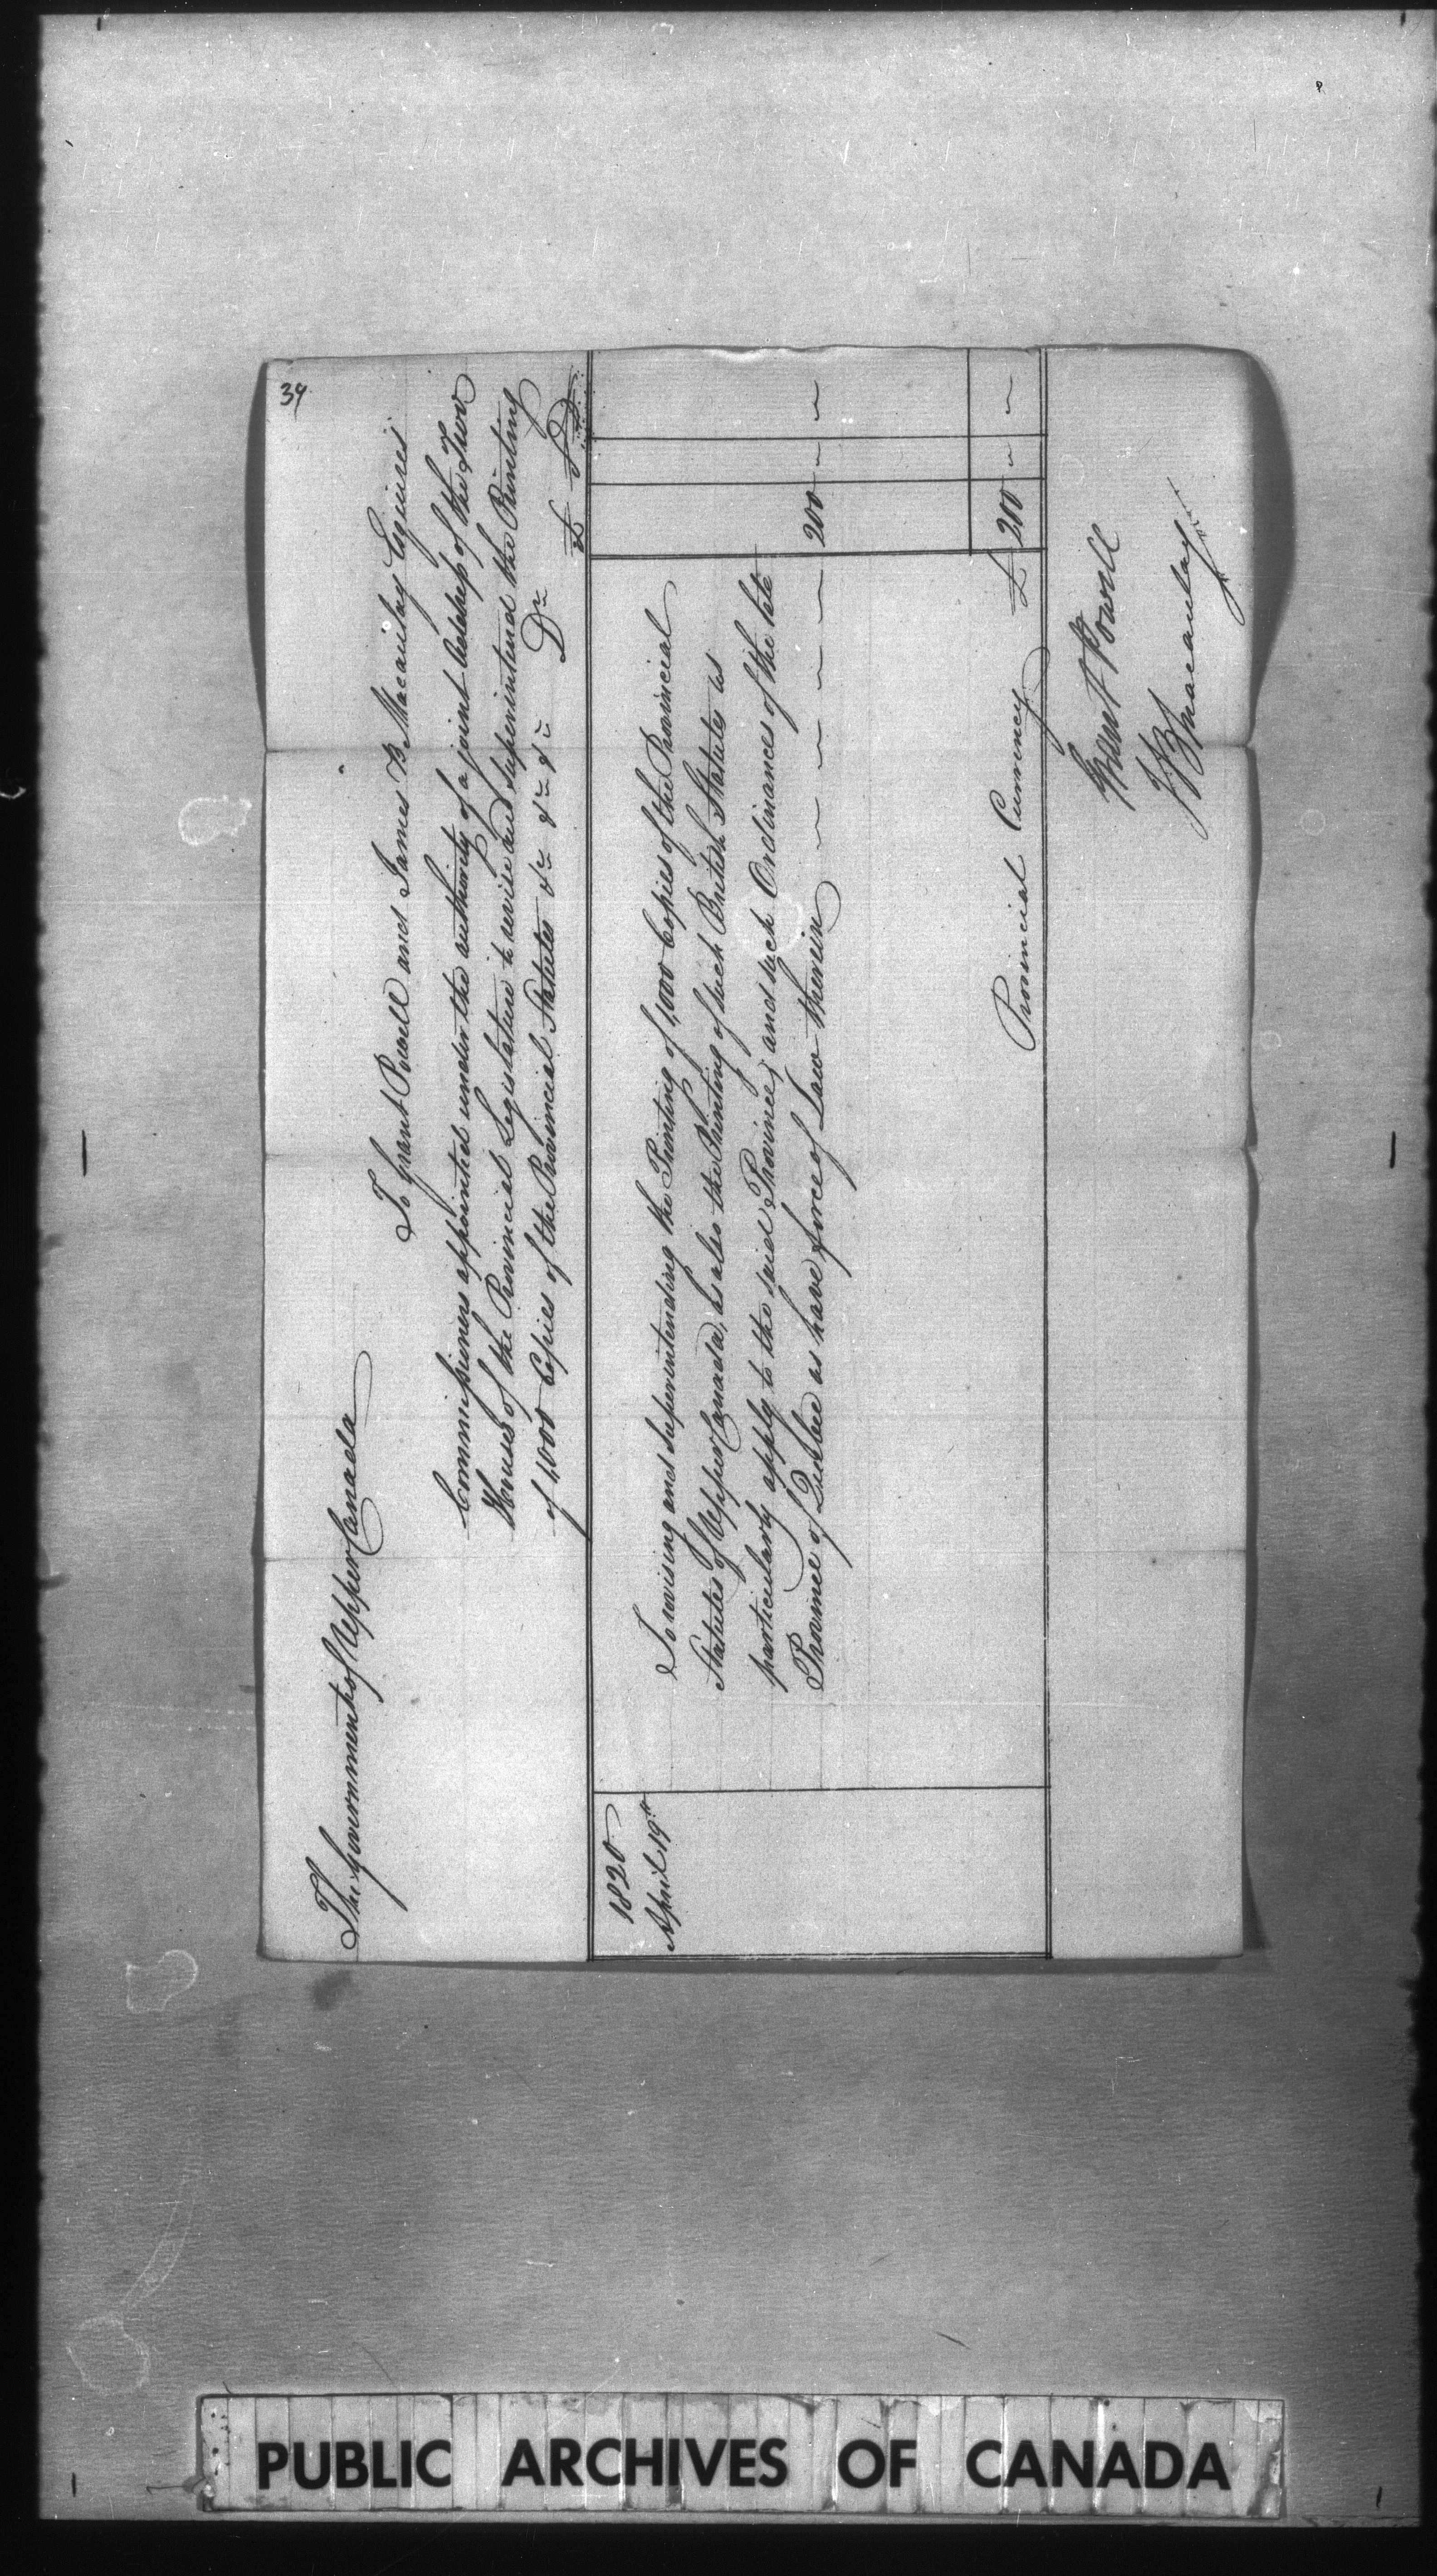 39
The Government of Upper Canada
To Grant Powell and James B Macaulay Esquires
Commissioners appointed under the authority of a joint Address of the Two
Houses of the Provincial Legislature to revise and superintend the Printing
of 1,000 Copies of the Provincial Statutes &c &c &c Dr
£ S D
1820
April 19th
To revising and superintending the Printing of 1,000 Copies of the Provincial
Statutes of Upper Canada, as also the Printing of such British Statutes as
particularly apply to the said Province, and such Ordinances of the late
Province of Quebec as have force of Law therein 200 " "
Provincial Currency £ 200 " "
Grant Powell
J B Macaulay
PUBLIC ARCHIVES OF CANADA